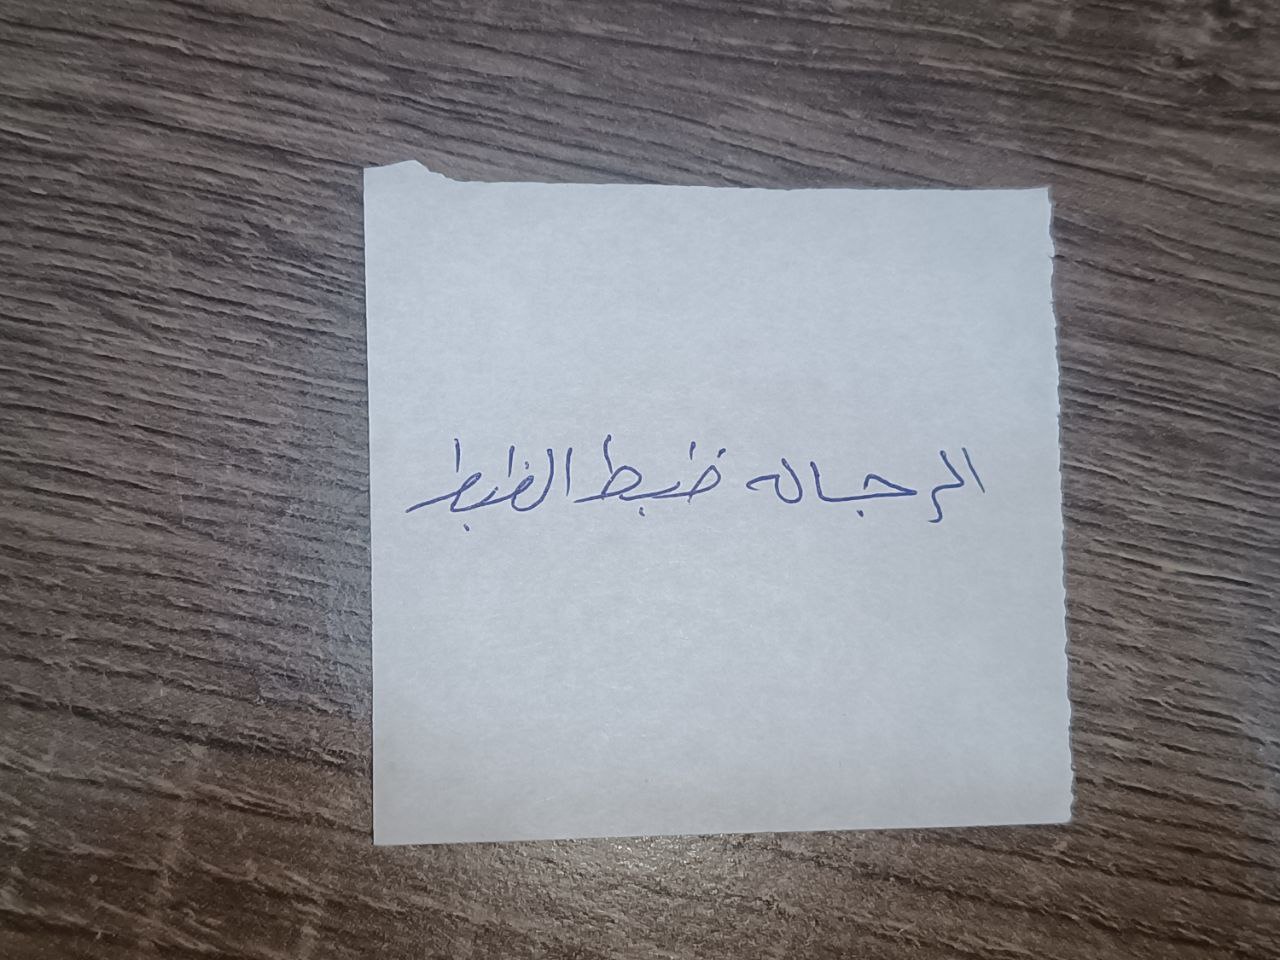 الرجاله ضبط الظبط